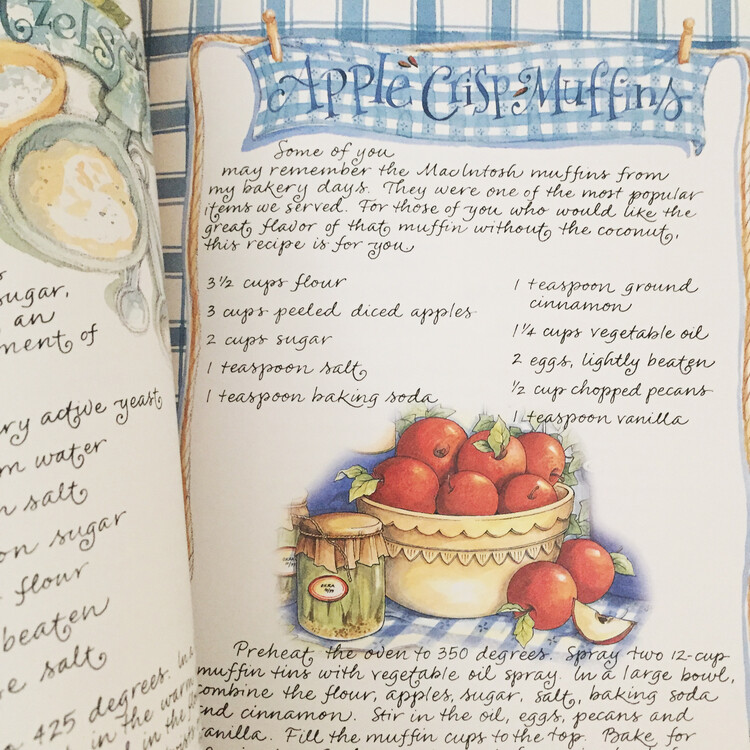 sugar,
an
of
active yeast
water
salt
sugar
flour
beaten
salt
425 degrees. In a
in the warm
in the
Apple Crisp Muffins
Some of you
may remember the MacIntosh muffins from
my bakery days. They were one of the most popular
items we served. For those of you who would like the
great flavor of that muffin without the coconut,
this recipe is for you
3½ cups flour
3 cups peeled diced apples
2 cups sugar
1 teaspoon salt
1 teaspoon baking soda
1 teaspoon ground
cinnamon
1¼ cups vegetable oil
2 eggs, lightly beaten
½ cup chopped pecans
1 teaspoon vanilla
Preheat the oven to 350 degrees. Spray two 12-cup
muffin tins with vegetable oil spray. In a large bowl,
combine the flour, apples, sugar, salt, baking soda
and cinnamon. Stir in the oil, eggs, pecans and
vanilla. Fill the muffin cups to the top. Bake for